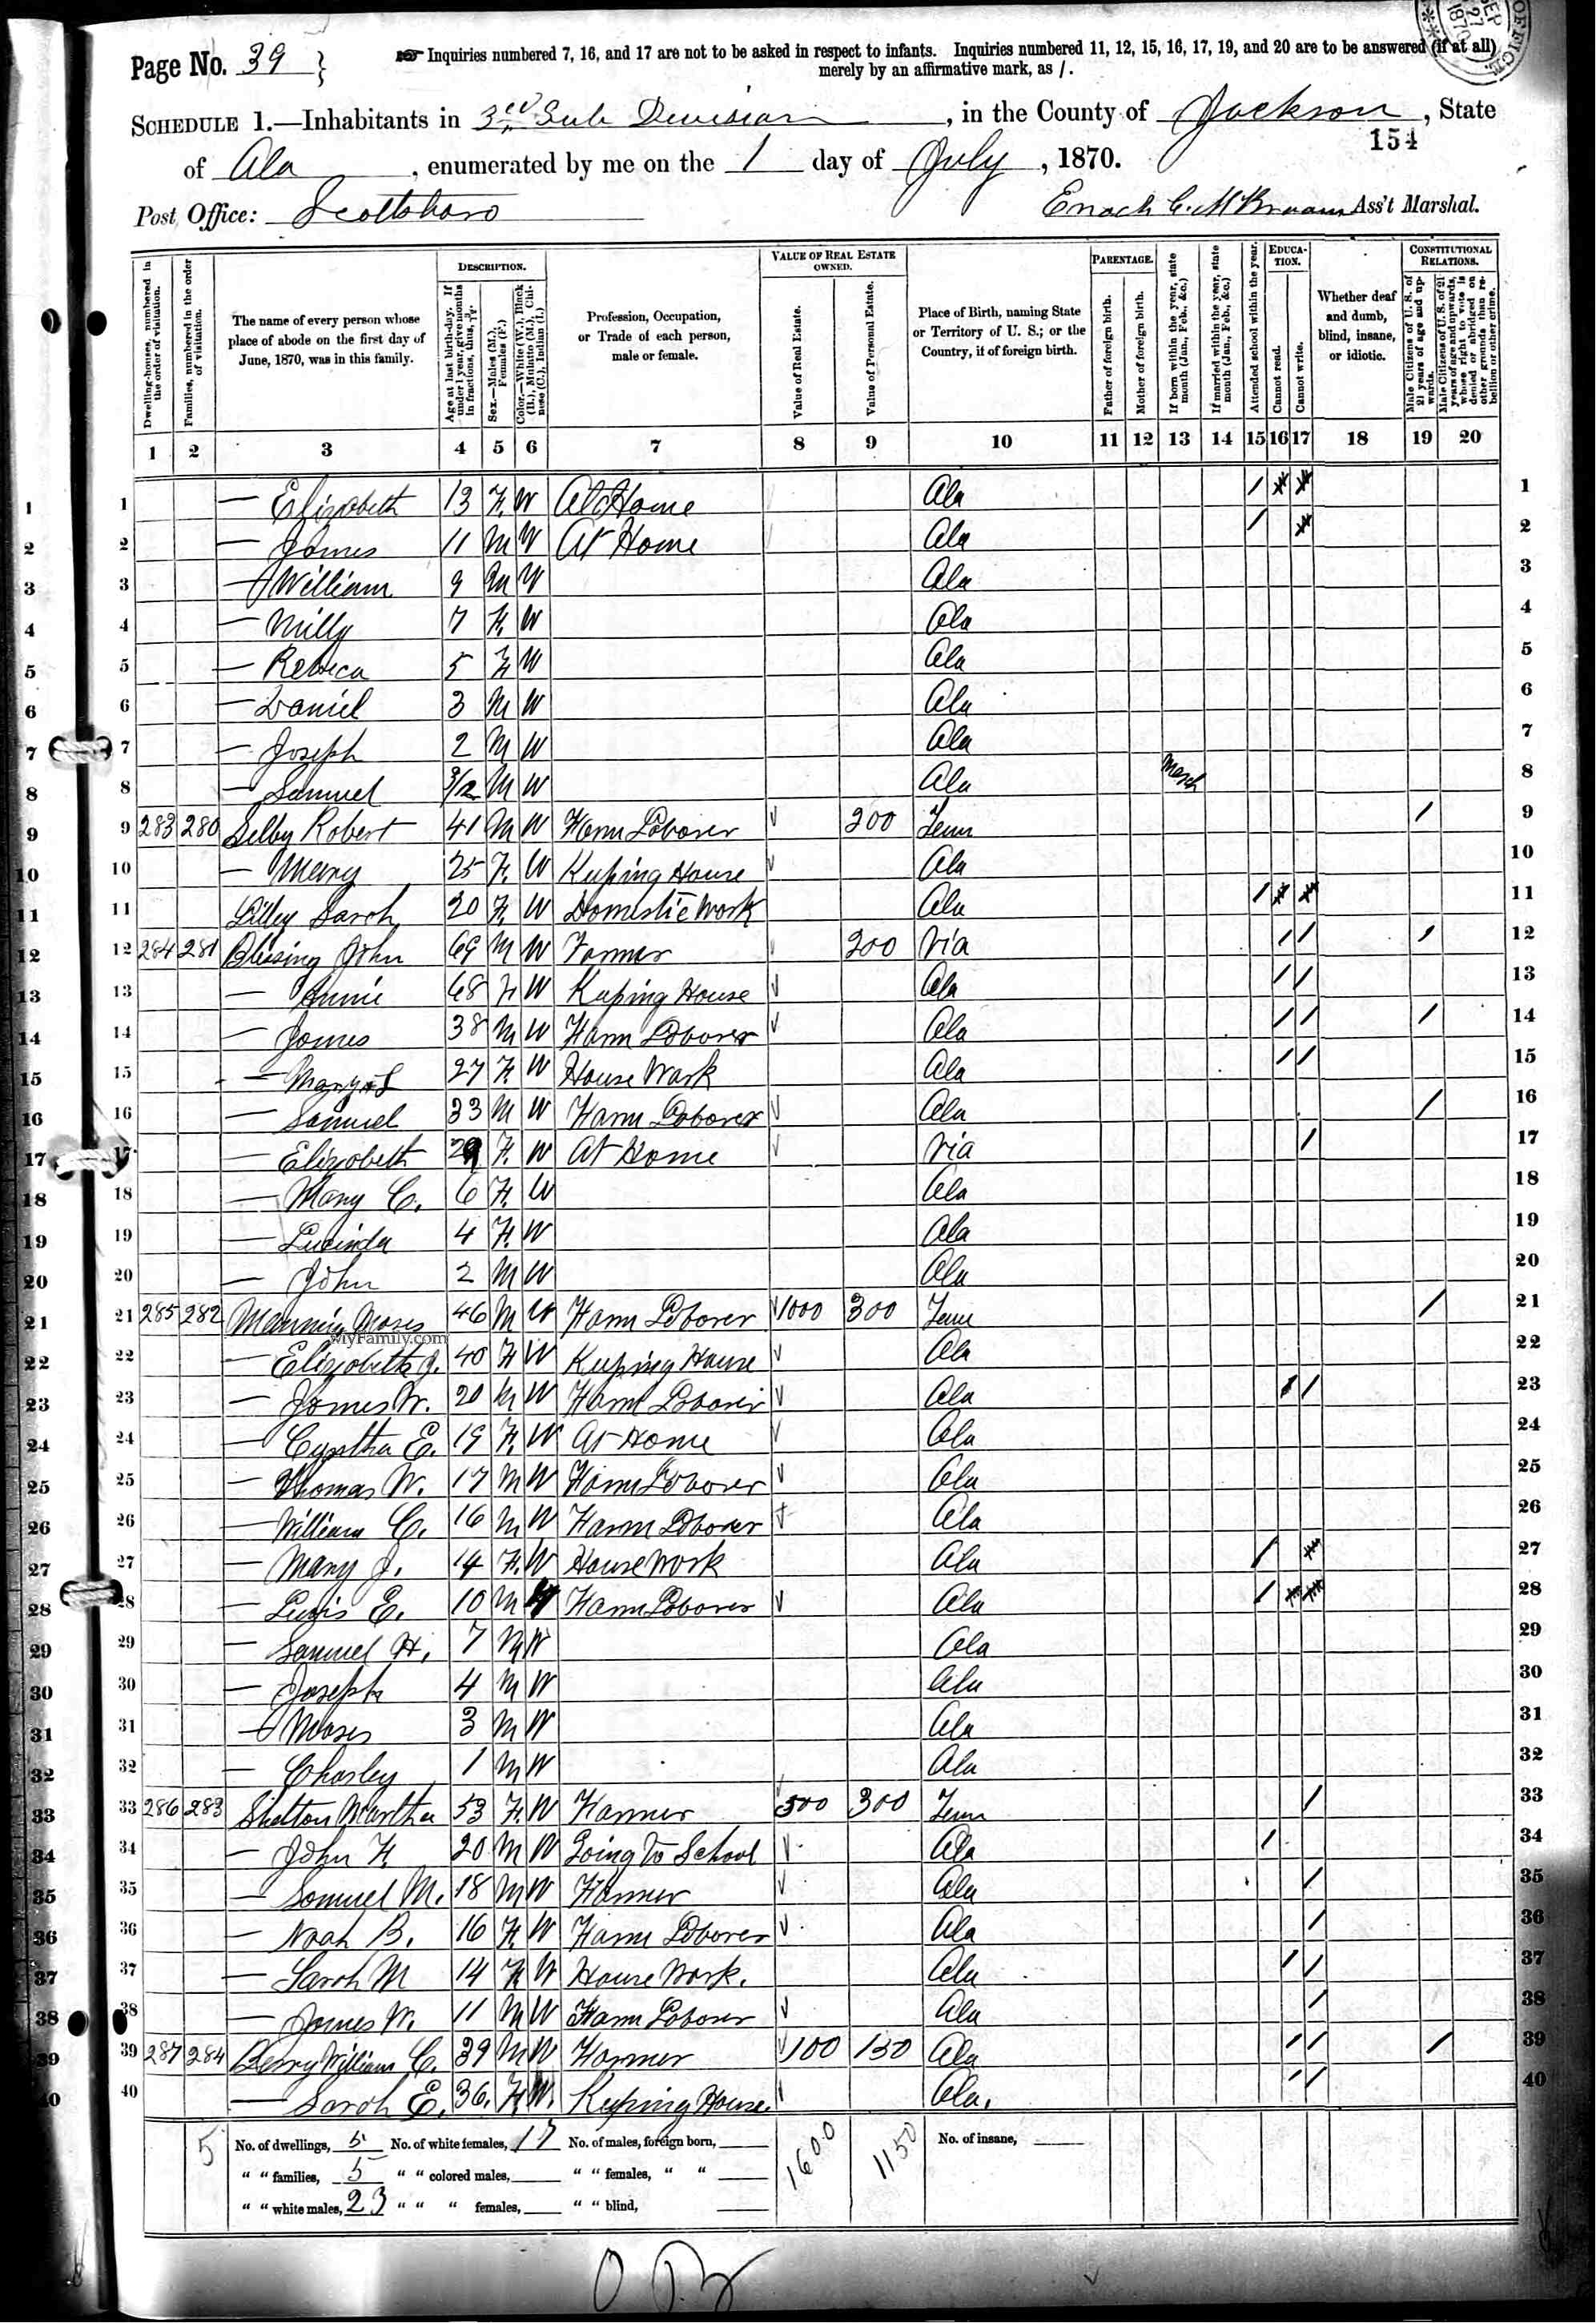 Page No. 39
Inquiries numbered 7, 16, and 17 are not to be asked in respect to infants. Inquiries numbered 11, 12, 15, 16, 17, 19, and 20 are to be answered (if at all)
merely by an affirmative mark, as /.
OFFICE
SEP 27 1870
SCHEDULE 1.—Inhabitants in 3rd Sub Division, in the County of Jackson, State
154
of Ala, enumerated by me on the 1 day of July, 1870.
Post Office: Scottsboro
Enoch C. Ass't Marshal.
Dwelling-houses, numbered in the order of visitation.
Families, numbered in the order of visitation.
The name of every person whose place of abode on the first day of June, 1870, was in this family.
DESCRIPTION.
Age at last birth-day. If under 1 year, give months in fractions, thus, 3/12.
Sex.—Males (M.), Females (F.)
Color.—White (W.), Black (B.), Mulatto (M.), Chinese (C.), Indian (I.)
Profession, Occupation, or Trade of each person, male or female.
VALUE OF REAL ESTATE OWNED.
Value of Real Estate.
Value of Personal Estate.
Place of Birth, naming State or Territory of U. S.; or the Country, if of foreign birth.
PARENTAGE.
Father of foreign birth.
Mother of foreign birth.
If born within the year, state month (Jan., Feb., &c.)
If married within the year, state month (Jan., Feb., &c.)
Attended school within the year.
EDUCATION.
Cannot read.
Cannot write.
Whether deaf and dumb, blind, insane, or idiotic.
CONSTITUTIONAL RELATIONS.
Male Citizens of U. S. of 21 years of age and upwards.
Male Citizens of U. S. of 21 years of age and upwards, whose right to vote is denied or abridged on other grounds than rebellion or other crime.
1 2 3 4 5 6 7 8 9 10 11 12 13 14 15 16 17 18 19 20
1 — Elizabeth 13 F W At Home Ala / 1
2 — James 11 M W At Home Ala / 2
3 — William 9 M W Ala 3
4 — Milly 7 F W Ala 4
5 — Rebeca 5 F W Ala 5
6 — Daniel 3 M W Ala 6
7 — Joseph 2 M W Ala 7
8 — Samuel 3/12 M W Ala March 8
9 283 280 Selby Robert 41 M W Farm Laborer 200 Tenn / 9
10 — Mary 25 F W Keeping House Ala 10
11 Lilley Sarah 20 F W Domestic Work Ala / 11
12 284 281 Blessing John 69 M W Farmer 200 Via / / / 12
13 — Annie 68 F W Keeping House Ala / / 13
14 — James 38 M W Farm Laborer Ala / / / 14
15 — Mary 27 F W House Work Ala / / 15
16 — Samuel 33 M W Farm Laborer Ala / 16
17 — Elizabeth 29 F W At Home Via / 17
18 — Mary C. 6 F W Ala 18
19 — Lucinda 4 F W Ala 19
20 — John 2 M W Ala 20
21 285 282 Manning Moses 46 M W Farm Laborer 1000 300 Tenn / 21
wiyFamily.com
22 — Elizabeth J. 40 F W Keeping House Ala 22
23 — James W. 20 M W Farm Laborer Ala / / 23
24 — Cyntha E. 19 F W At Home Ala 24
25 — Thomas W. 17 M W Farm Laborer Ala 25
26 — William C. 16 M W Farm Laborer Ala 26
27 — Mary J. 14 F W House Work Ala / 27
28 — Lewis E. 10 M W Farm Laborer Ala / 28
29 — Samuel H. 7 M W Ala 29
30 — Joseph 4 M W Ala 30
31 — Moses 3 M W Ala 31
32 — Charley 1 M W Ala 32
33 286 283 Shelton Martha 53 F W Farmer 500 300 Tenn / 33
34 — John F. 20 M W Going To School Ala / 34
35 — Samuel M. 18 M W Farmer Ala / 35
36 — Noah B. 16 F W Farm Laborer Ala / 36
37 — Sarah M 14 F W House Work. Ala / / 37
38 — James W. 11 M W Farm Laborer Ala / 38
39 287 284 Berry William C. 39 M W Farmer 100 150 Ala / / / 39
40 — Sarah E. 36. F W. Keeping House. Ala. / / 40
5 No. of dwellings, 5 No. of white females, 17 No. of males, foreign born, 1600 1150 No. of insane,
" " families, 5 " " colored males, " " females, " "
" " white males, 23 " " " females, " " blind,